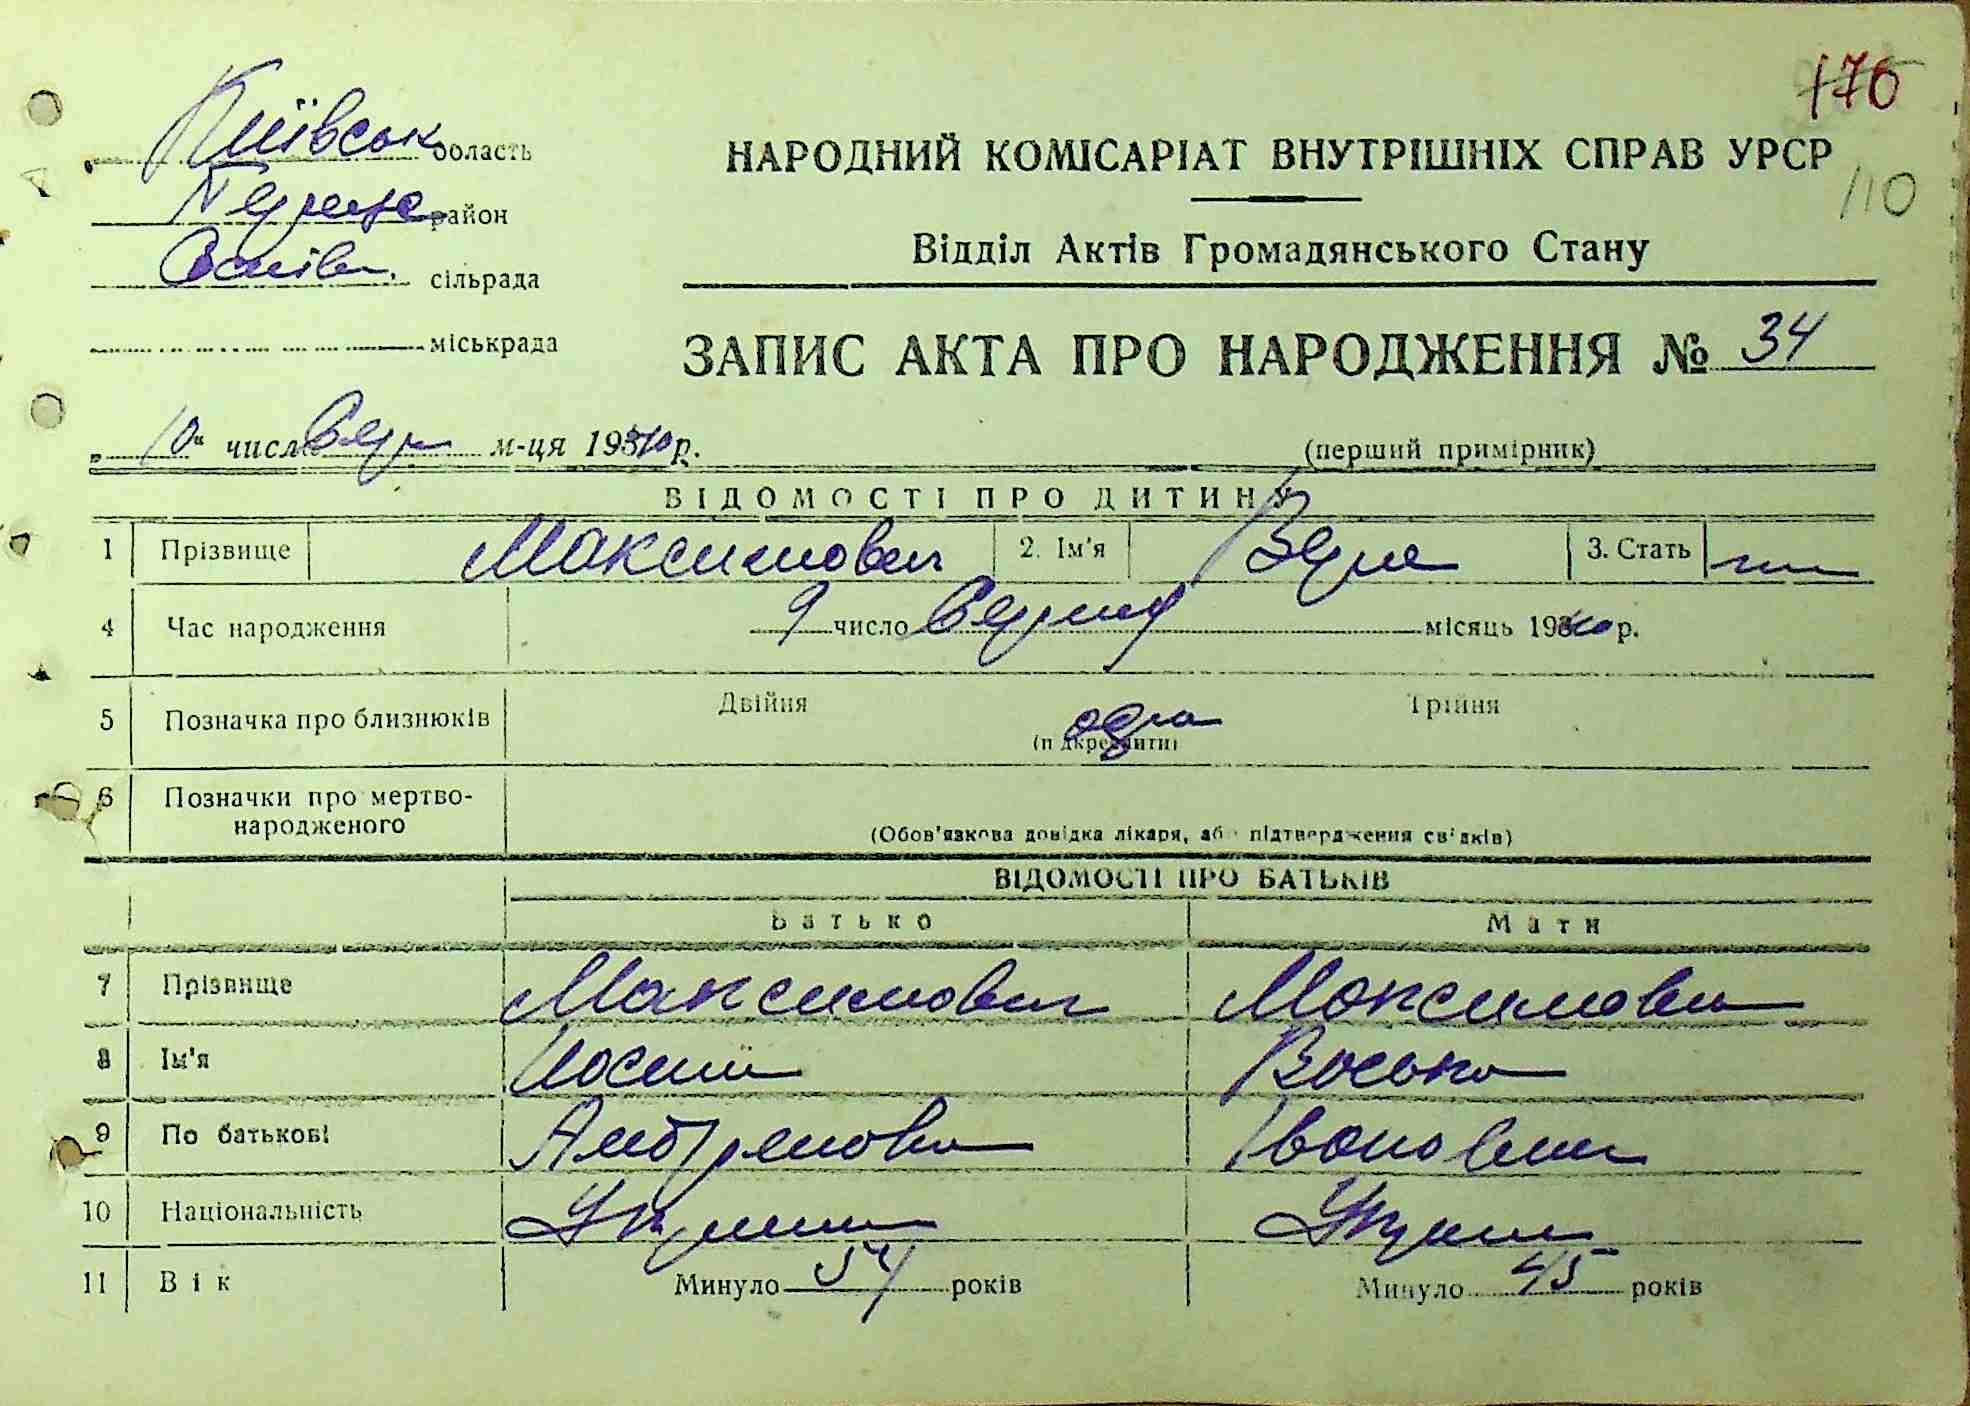 170
110
Київськ область
район
сільрада
міськрада
НАРОДНИЙ КОМІСАРІАТ ВНУТРІШНІХ СПРАВ УРСР
Відділ Актів Громадянського Стану
ЗАПИС АКТА ПРО НАРОДЖЕННЯ № 34
„10“ числ Серп м-ця 1940 р.
(перший примірник)
ВІДОМОСТІ ПРО ДИТИНУ
1 Прізвище Максимович 2. Ім'я Вера 3. Стать
4 Час народження 9 число Серпня місяць 1940 р.
5 Позначка про близнюків Двійня одна Трійня
(підкреслити)
6 Позначки про мертво-
народженого
(Обов'язкова довідка лікаря, або підтвердження свідків)
ВІДОМОСТІ ПРО БАТЬКІВ
Батько Мати
7 Прізвище Максимович Максимович
8 Ім'я Иосип
9 По батькові Івановна
10 Національність
11 Вік Минуло 54 років Минуло 45 років